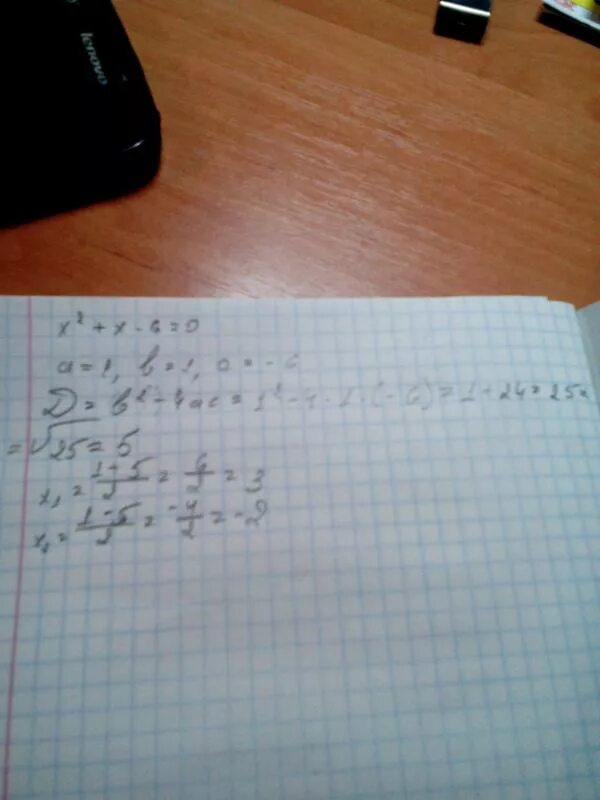 lenovo
x² + x - 6 = 0
a = 1, b = 1, c = - 6
D = b² - 4ac = 1² - 4 · 1 · (- 6) = 1 + 24 = 25 =
= √25 = 5
x₁ = (1+5)/2 = 6/2 = 3
x₂ = (1-5)/2 = -4/2 = -2